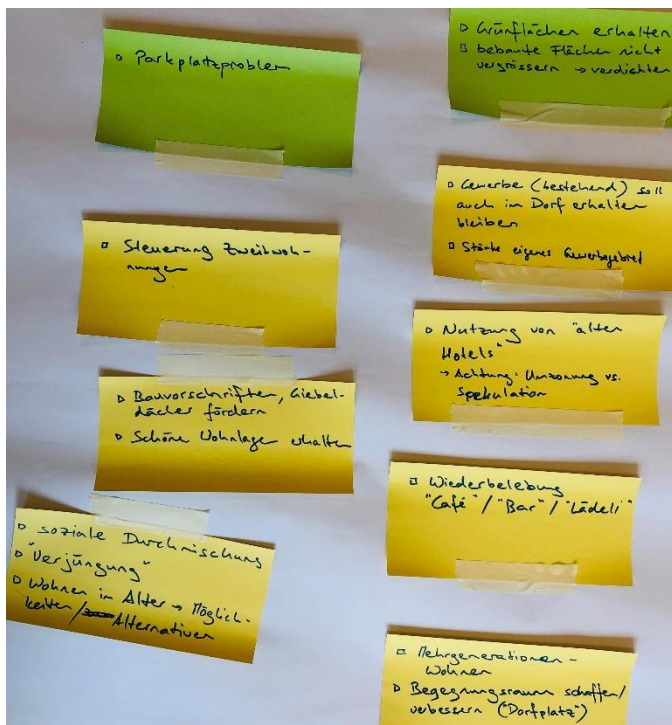 ▫ Parkplatzproblem
▫ Steuerung Zweitwoh-
nungen
▫ Bauvorschriften, Giebel-
dächer fördern
▫ Schöne Wohnlagen erhalten
▫ soziale Durchmischung
▫ "Verjüngung"
▫ Wohnen im Alter → Möglich-
keiten/ Alternativen
▫ Grünflächen erhalten
▫ bebaute Flächen nicht
vergrössern → verdichten
▫ Gewerbe (bestehend) soll
auch im Dorf erhalten
bleiben
▫ Stärke eigenes Gewerbegebiet
▫ Nutzung von "alten
Hotels"
→ Achtung: Umzonung vs.
Spekulation
▫ Wiederbelebung
"Café" / "Bar" / "Lädeli"
▫ Mehrgenerationen-
Wohnen
▫ Begegnungsraum schaffen/
verbessern ("Dorfplatz")